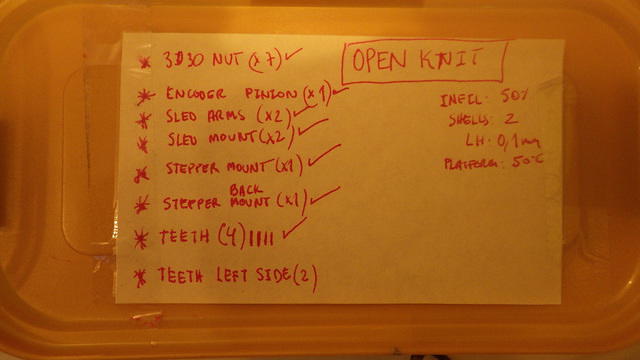 OPEN KNIT
* 3D30 NUT (x7) ✓
* ENCODER PINION (x1) ✓
* SLED ARMS (x2) ✓
* SLED MOUNT (x2) ✓
* STEPPER MOUNT (x1) ✓
* STEPPER BACK MOUNT (x1) ✓
* TEETH (4) |||| ✓
* TEETH LEFT SIDE (2)
INFILL: 50%
SHELLS: 2
LH: 0,1mm
PLATFORM: 50°C